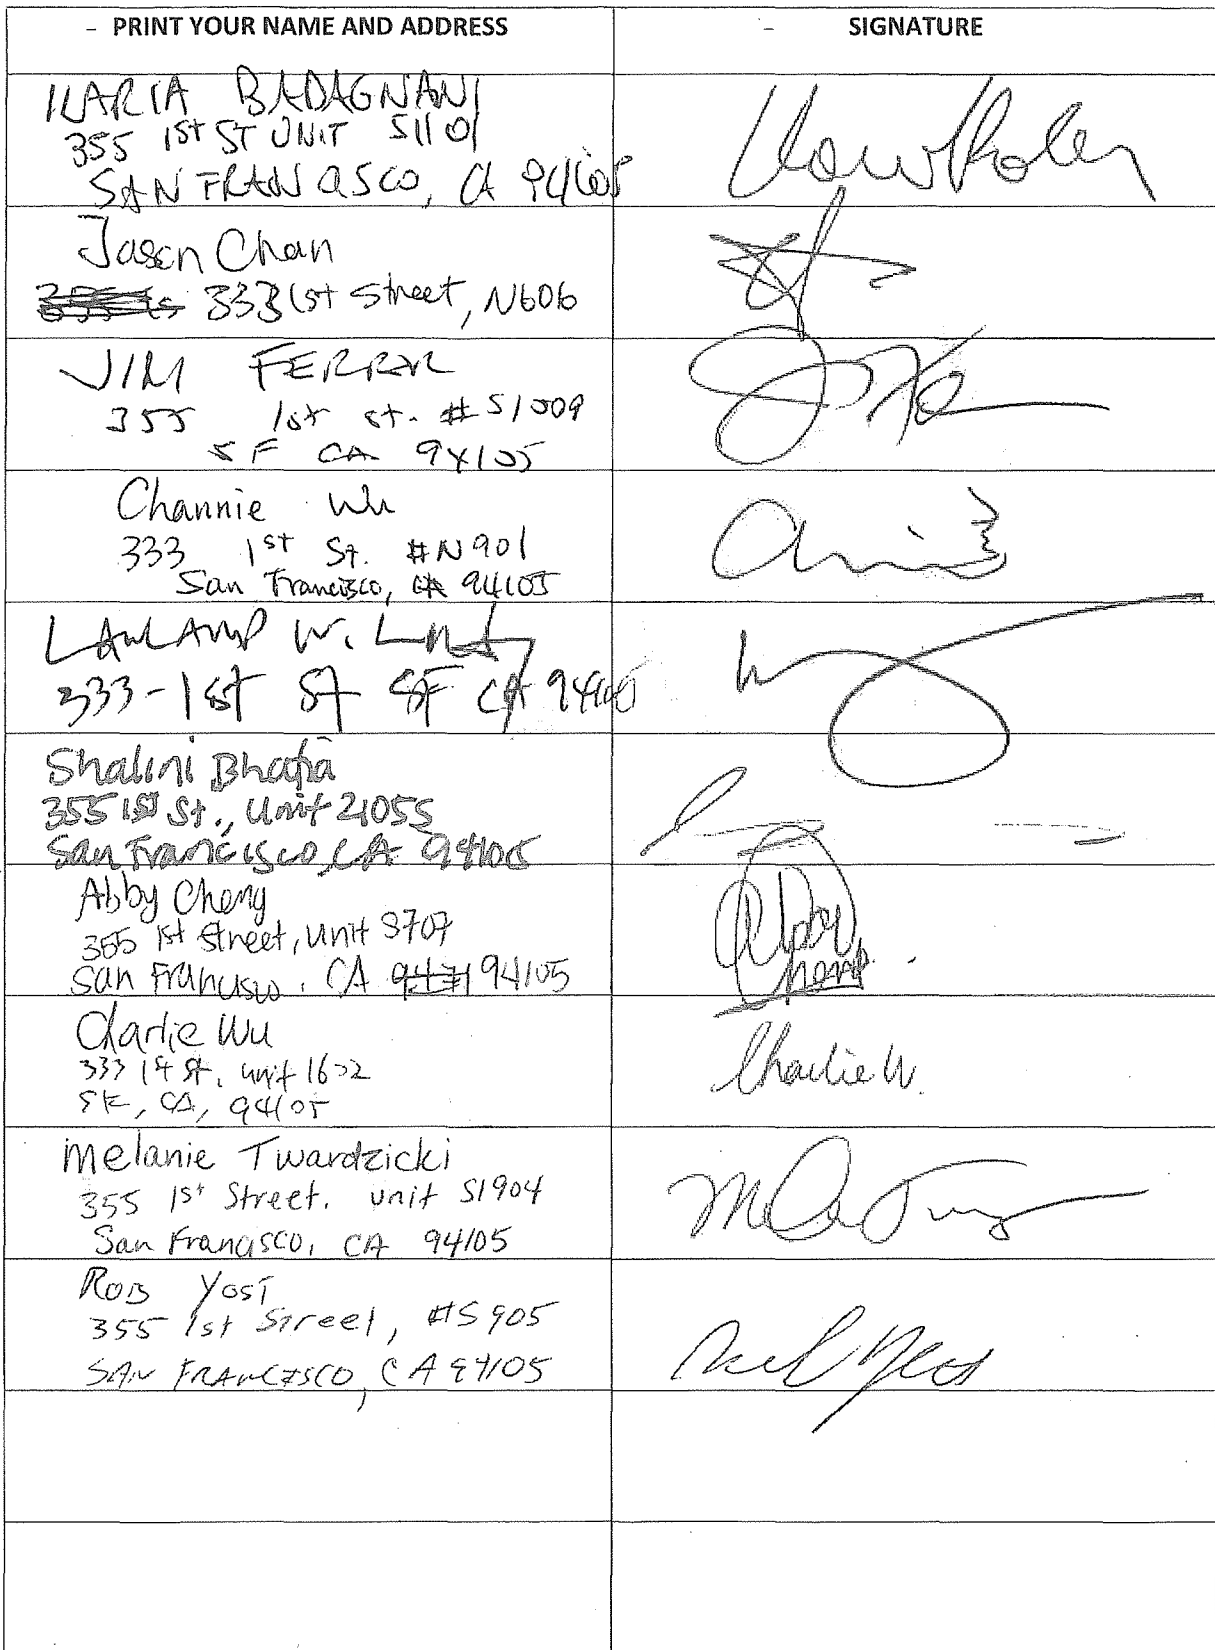 - PRINT YOUR NAME AND ADDRESS
- SIGNATURE
ILARIA BADAGNANI
355 1st ST UNIT S1101
SAN FRANCISCO, CA 94105
Jason Chan
333 1st Street, N606
JIM FERRER
355 1st st. # S1009
SF CA 94105
Channie Wu
333 1st St. #N901
San Francisco, CA 94105
W.
333-1st St SF CA 94105
Shalini Bhatia
355 1st St., Unit
San Francisco, CA 94105
Abby Cheng
355 1st Street, Unit 3707
San Francisco, CA 94105
Abby Cheng
Charlie Wu
333 1st St, unit
SF, CA, 94105
Charlie W.
Melanie Twardzicki
355 1st Street. unit S1904
San Francisco, CA 94105
ROB YOST
355 1st Street, #S905
SAN FRANCISCO, CA 94105